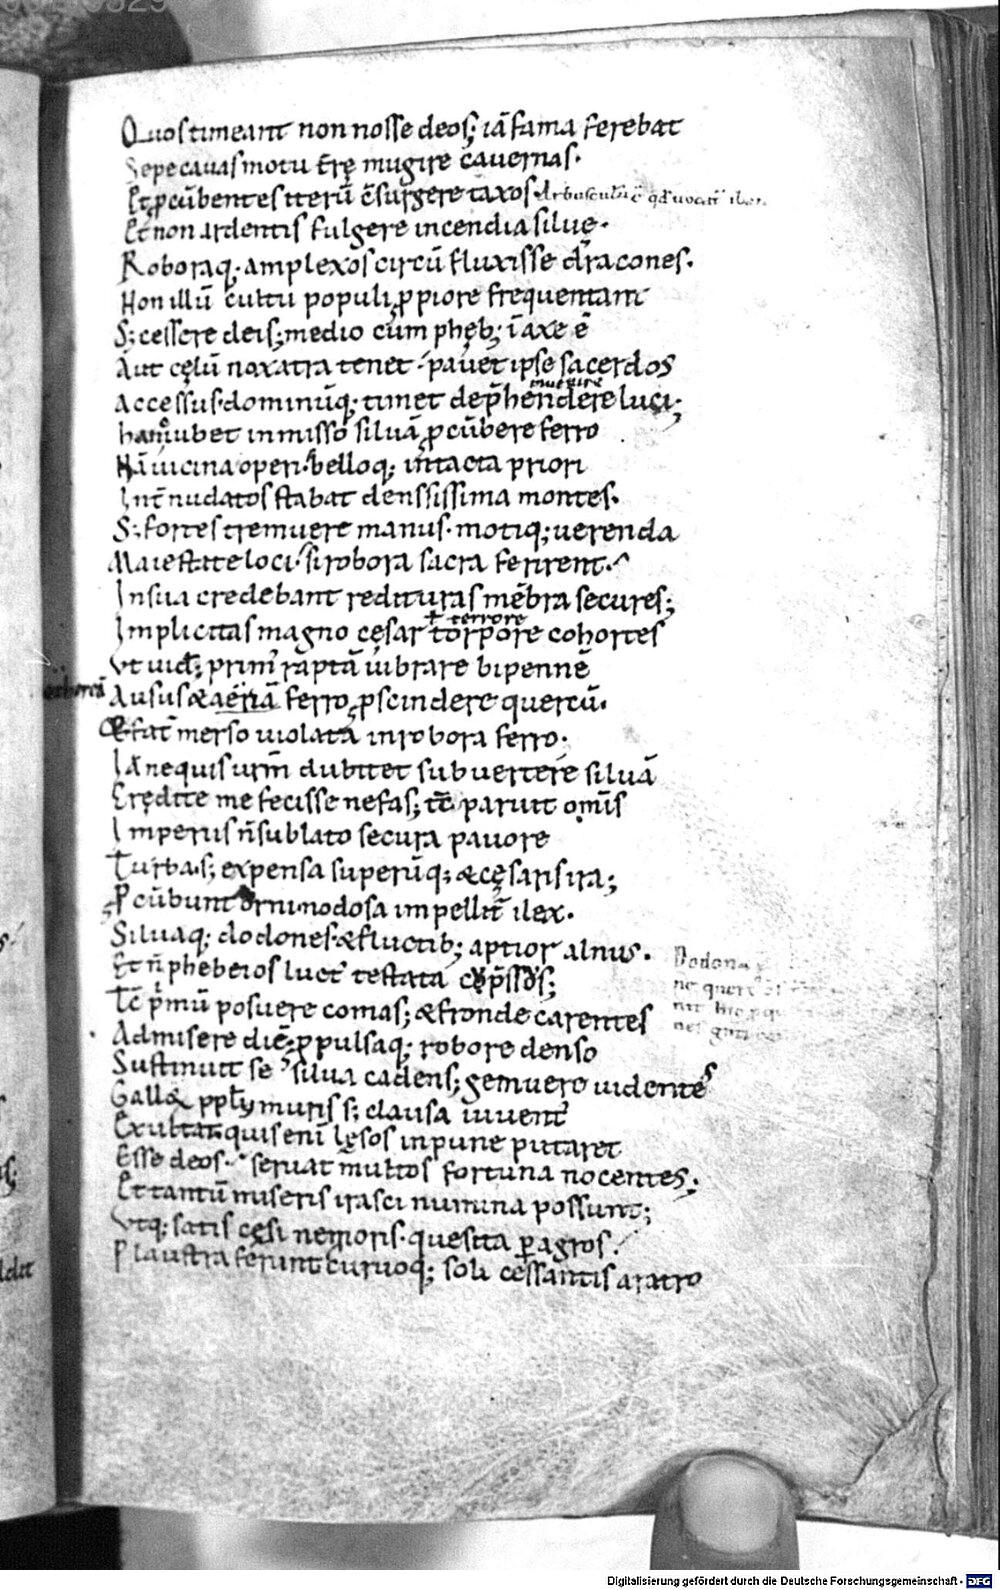 Quos timeant non nosse deos; iā fama ferebat
Sepe cauas motu t̄rę mugire cauernas.
Et ꝓcūbentes iterū c̄surgere taxos.
Et non ardentis fulgere incendia siluę.
Roboraq; amplexos circū fluxisse dracones.
Non illū cultu populi ꝓpiore frequentant
S; cessere deis; medio cum phęb; ī axe ē
Aut cęlū nox atra tenet. pauet ipse sacerdos
Accessus. dominūq; timet dep̄hendere luci;
hanc iubet inmisso siluā ꝓcūbere ferro
Nā uicina operi. belloq; intacta priori
Int̄ nudatos stabat denssissima montes.
S; fortes tremuere manus. motiq; uerenda
Maiestate loci. si robora sacra ferirent.
In sua credebant redituras mēbra secures;
ł terrore
Implicitas magno cęsar torpore cohortes
Vt uid; prim' raptā uibrare bipennē
Ausus & aeriā ferro ꝓscindere quercū.
Effat̄ merso uiolata in robora ferro.
Iā nequis urm̄ dubitet subuertere siluā
Credite me fecisse nefas; tc̄ paruit om̄is
Imperiis n̄ sublato secura pauore
Turba. s; expensa superūq; & cęsaris ira;
ꝓcūbunt orni. nodosa impellit̄ ilex.
Siluaq; dodones. & fluctib; aptior alnus.
Et n̄ pheb eios luct' testata cyp̄ssos;
Tc̄ p̄mū posuere comas; & fronde carentes
Admisere diē. ꝓpulsaq; robore denso
Sustinuit se silua cadens; gemuere uidentes
Gallo& ppl̄i muris s; clausa iuuent'
Exultat. quis enī lęsos inpune putaret
Esse deos. seruat multos fortuna nocentes;
Et tantū miseris irasci numina possunt;
Vtq; satis cęsi nemoris. quesita ꝑ agros.
Plaustra ferunt curuoq; soli cessantis aratro
Dodona
Digitalisierung gefördert durch die Deutsche Forschungsgemeinschaft - DFG